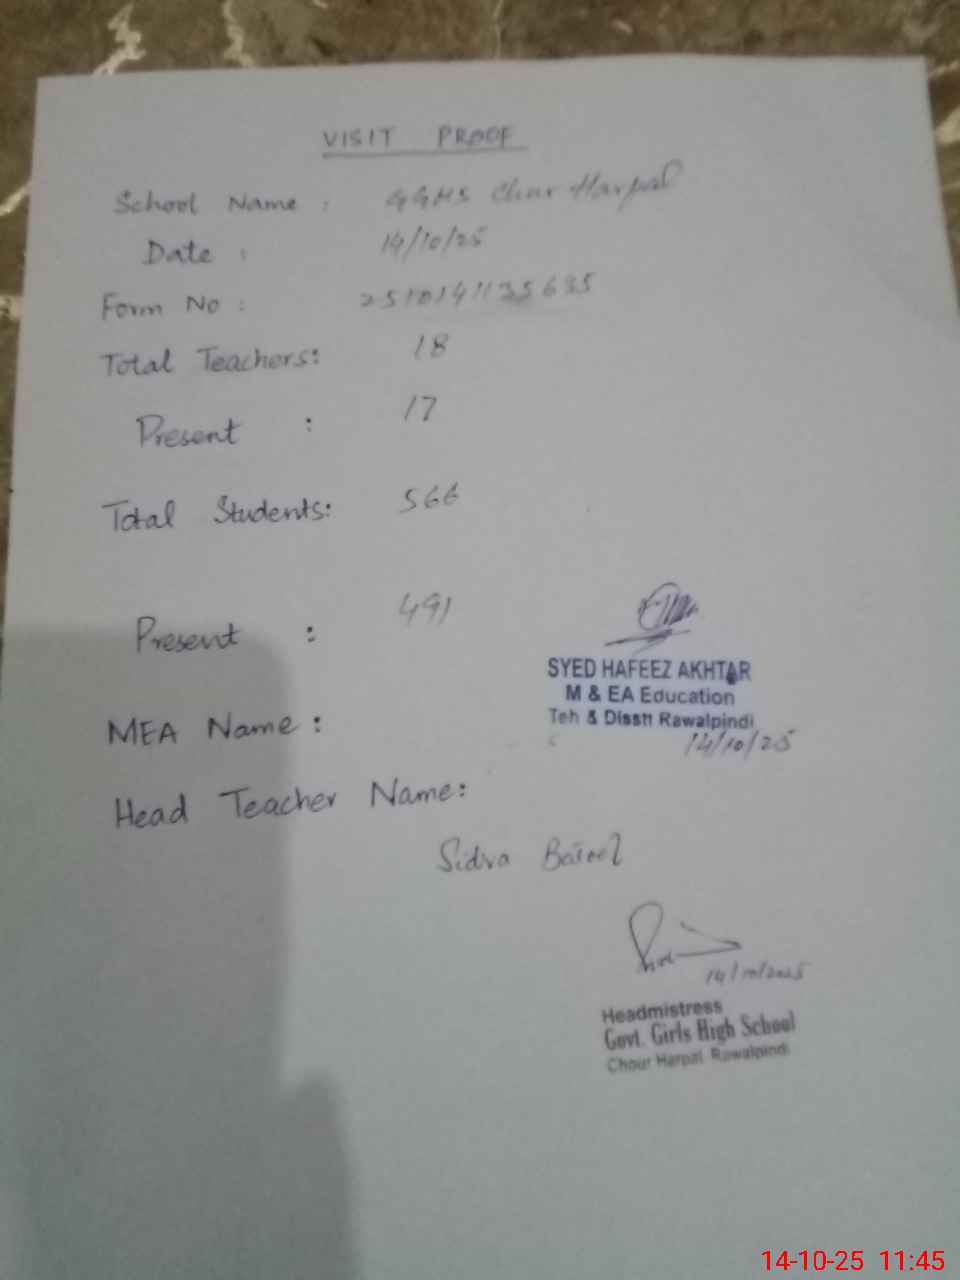 VISIT PROOF
School Name : GGHS Chur Harpal
Date : 14/10/25
Form No : 2510141135635
Total Teachers: 18
Present : 17
Total Students: 566
Present : 491
SYED HAFEEZ AKHTAR
M & EA Education
Teh & Disstt Rawalpindi
14/10/25
MEA Name :
Head Teacher Name:
Sidra Batool
14/10/2025
Headmistress
Govt. Girls High School
Chour Harpal Rawalpindi
14-10-25 11:45